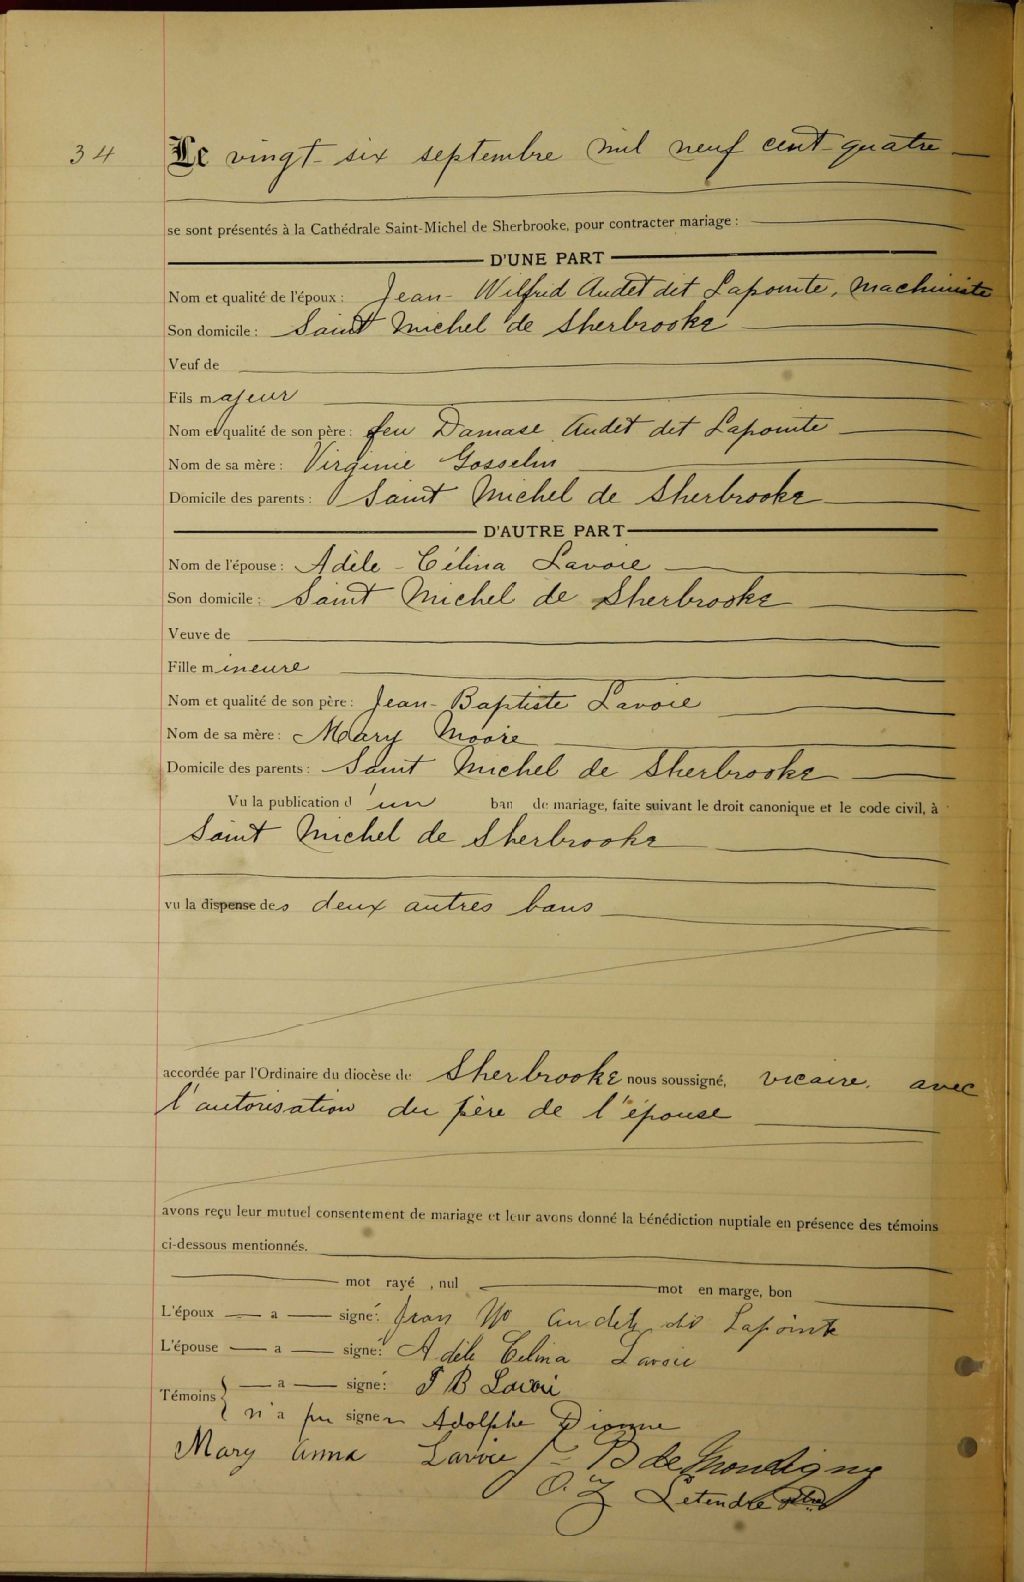 34 Le vingt-six septembre mil neuf cent-quatre
se sont présentés à la Cathédrale Saint-Michel de Sherbrooke, pour contracter mariage :
D'UNE PART
Nom et qualité de l'époux : Jean-Wilfred Audet dit Lapointe, machiniste
Son domicile : Saint Michel de Sherbrooke
Veuf de
Fils majeur
Nom et qualité de son père : feu Damase Audet dit Lapointe
Nom de sa mère : Virginie Gosselin
Domicile des parents : Saint Michel de Sherbrooke
D'AUTRE PART
Nom de l'épouse : Adèle-Célina Lavoie
Son domicile : Saint Michel de Sherbrooke
Veuve de
Fille mineure
Nom et qualité de son père : Jean-Baptiste Lavoie
Nom de sa mère : Mary Moore
Domicile des parents : Saint Michel de Sherbrooke
Vu la publication d'un ban de mariage, faite suivant le droit canonique et le code civil, à
Saint Michel de Sherbrooke
vu la dispense des deux autres bans
accordée par l'Ordinaire du diocèse de Sherbrooke nous soussigné, vicaire, avec
l'autorisation du père de l'épouse
avons reçu leur mutuel consentement de mariage et leur avons donné la bénédiction nuptiale en présence des témoins
ci-dessous mentionnés.
mot rayé , nul mot en marge, bon
L'époux a signé: Jean Audet dit Lapointe
L'épouse a signé: Adèle Celina Lavoie
Témoins a signé: J B Lavoi
n'a pu signer Adolphe Dionne
Mary Anna Lavoie J-B de Montigny
O. Z Letendre ptre